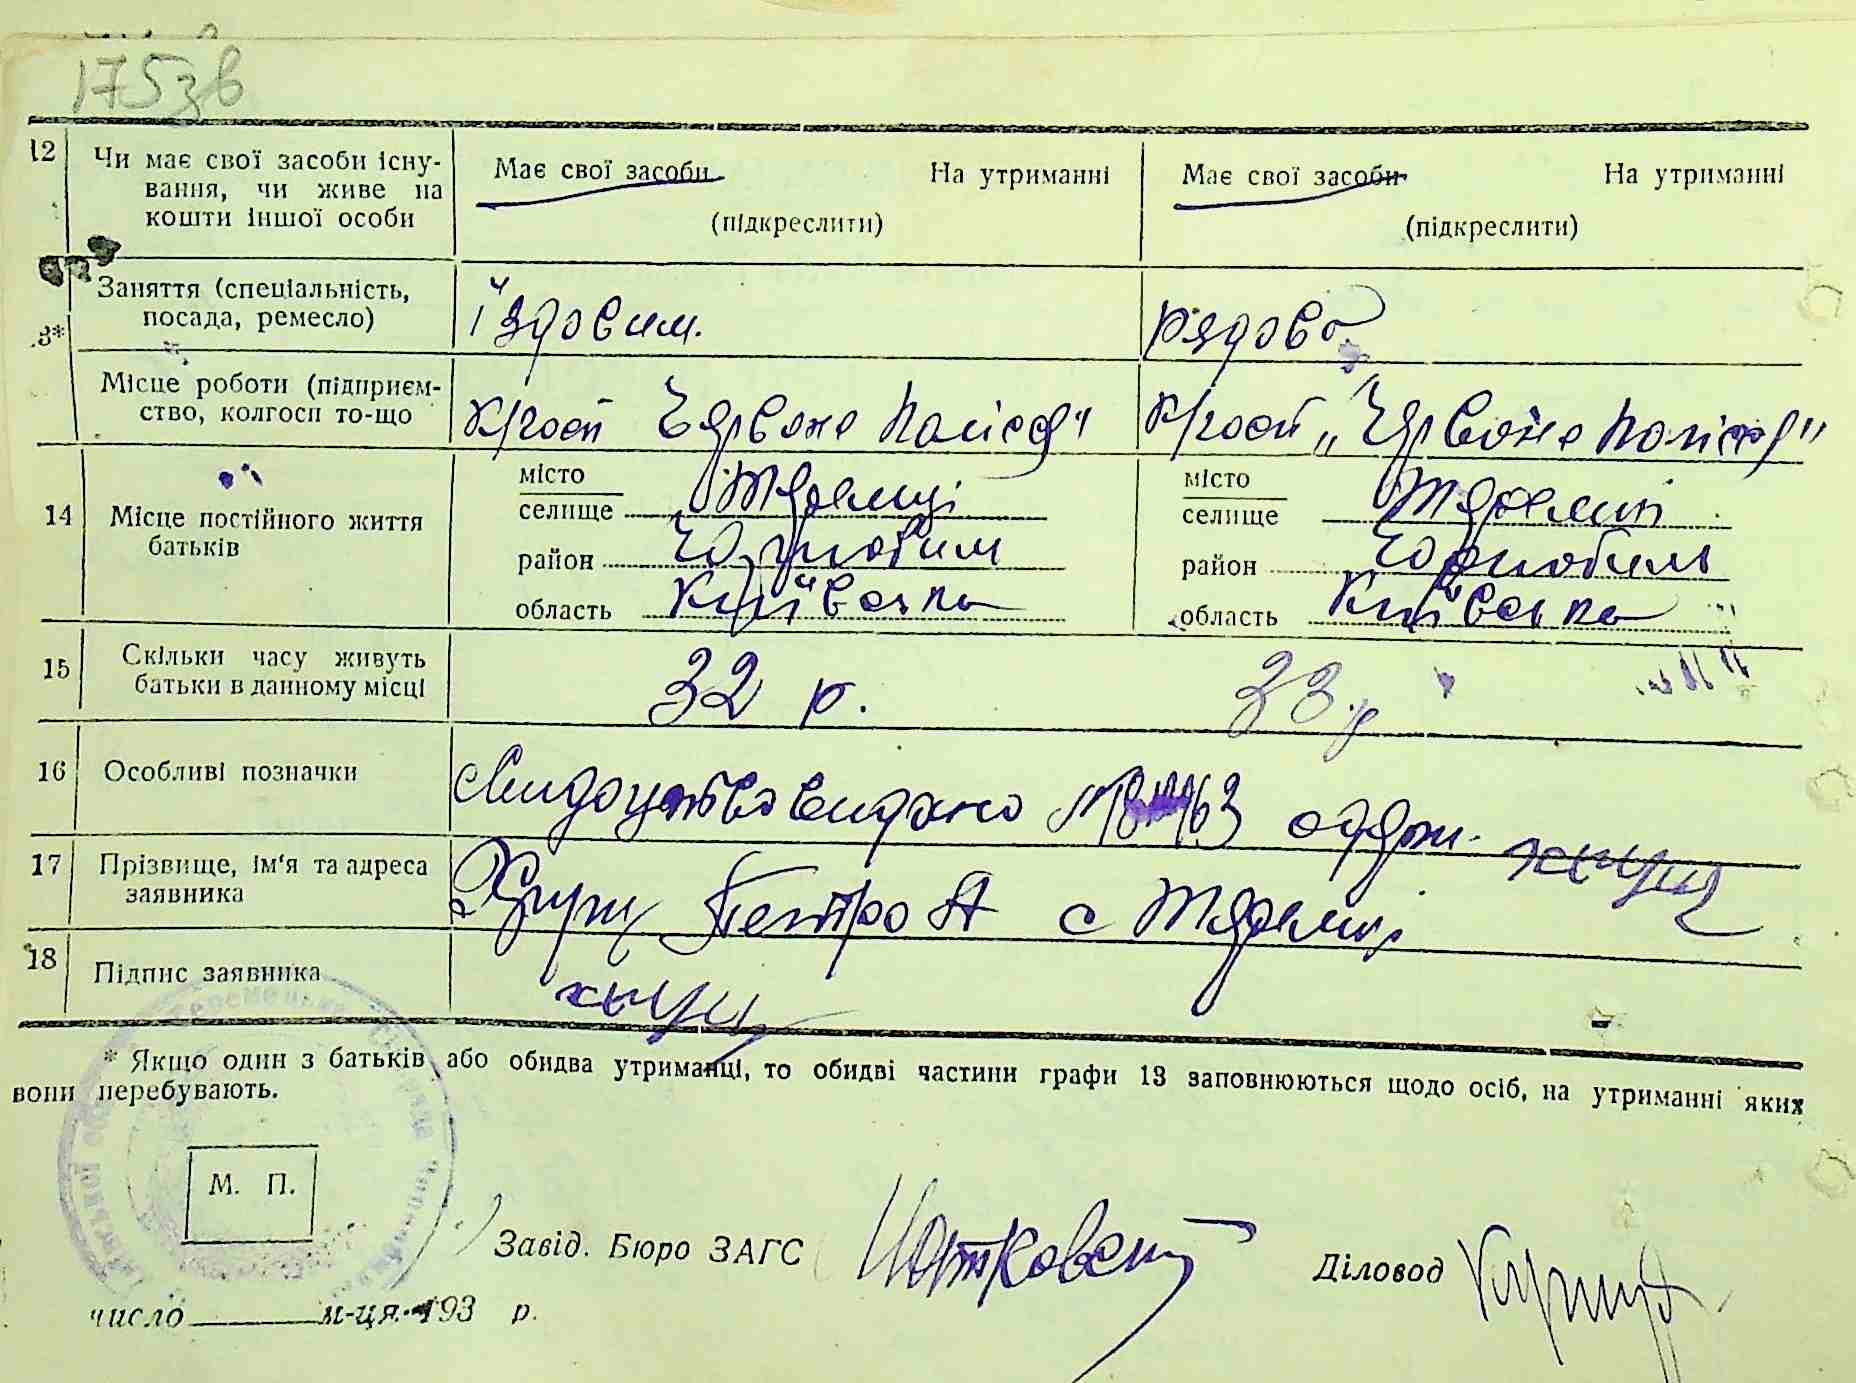 175зв
12 Чи має свої засоби існу-
вання, чи живе на
кошти іншої особи
Має свої засоби На утриманні
(підкреслити)
Має свої засоби На утриманні
(підкреслити)
3* Заняття (спеціальність,
посада, ремесло)
їздовим.
рядова
Місце роботи (підприєм-
ство, колгосп то-що
К/госп Червоне Полісся"
К/госп „Червоне Полісся"
14 Місце постійного життя
батьків
місто
селище Теремці
район Чорнобиль
область Київська
місто
селище Теремці
район Чорнобиль
область Київська
15 Скільки часу живуть
батьки в данному місці
32 р.
33 р
16 Особливі позначки
Свидоцтво видано одерж.
17 Прізвище, ім'я та адреса
заявника
Петро А с Теремці
18 Підпис заявника
* Якщо один з батьків або обидва утриманці, то обидві частини графи 13 заповнюються щодо осіб, на утриманні яких
вони перебувають.
М. П.
Завід. Бюро ЗАГС
Діловод
число м-ця 193 р.